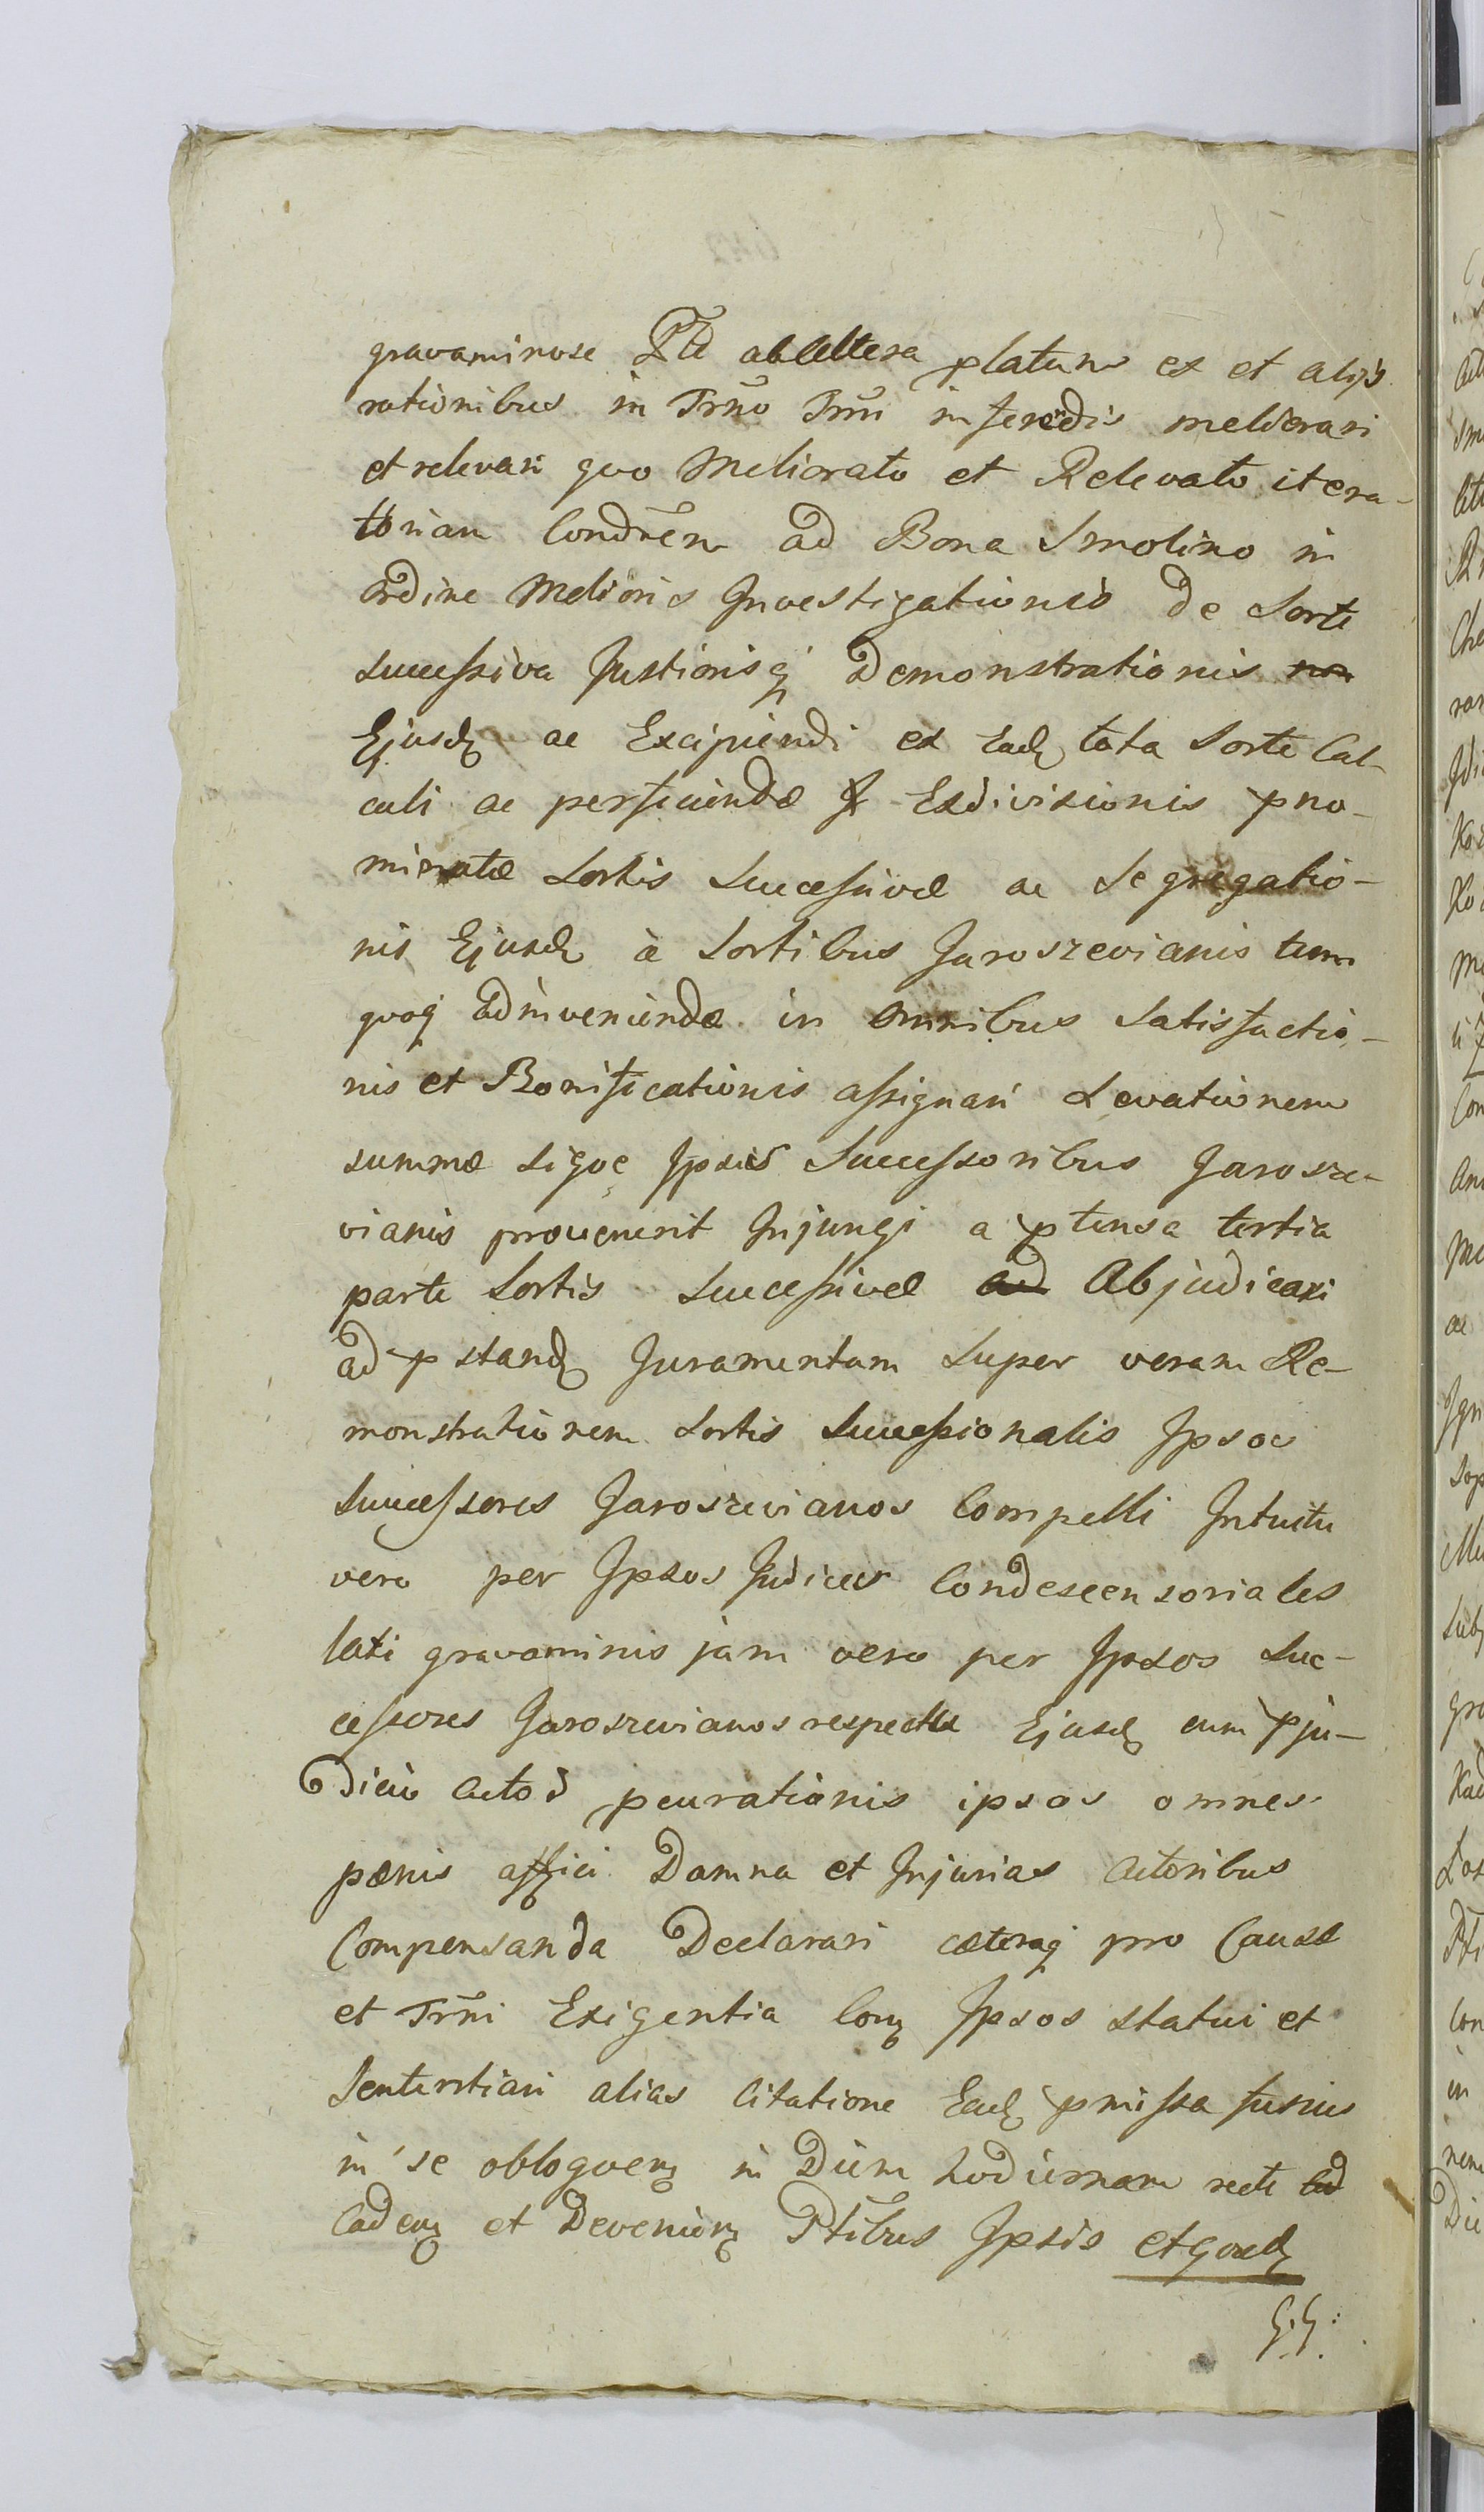 gravaminose Pte ab altera platum ex et alijs
rationibus in Trño Trñi inferēdis meliorari
et relevari quo Meliorato et Relevato itera-
toriam Condrēm ad Bona Smolino in
ordine Melioris Investigationis de Sorte
successiva Justiorisq Demonstrationis non
Ejusdq ac Excipiendi ex Eadq tota Sorte Cal-
culi ac perficiendæ Exdivisionis pno-
minatæ Sortis Successivæ ac Segregatio-
nis Ejusdq à Sortibus Jaroszevianis tum
quoq adinveniendæ in omnibus Satisfactio-
nis et Bonificationis assignari Levationem
summæ siquæ Ipsis Successoribus Jarosze-
vianis provenerit Injungi a ptensa tertia
parte Sortis Successivæ ad Abjudicari
ad pstandq Juramentum Super veram Re-
monstrationem Sortis Successionalis Ipsos
Successores Jaroszevianos Compelli Intuitu
vero per Ipsos Judices Condescensoriales
lati gravaminis jam vero per Ipsos Suc-
cessores Jaroszevianos respectu Ejusdq cum pju-
dicio Actor pcurationis ipsos omnes
pænis affici Damna et Injurias Actoribus
Compensanda Declarari cæteraq pro Causæ
et Trñi Exigentia Conq Ipsos statui et
Sententiari alias Citatione Eadq pmissa fusius
in se obloquenq in Diem hodiernam recte ad
Cadenq et Devenienq Ptibus Ipsis etquidq